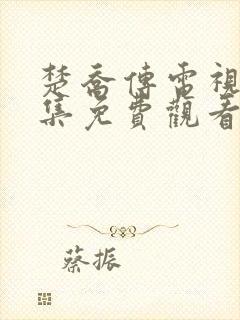 楚喬傳電視
集免費觀看
蔡振